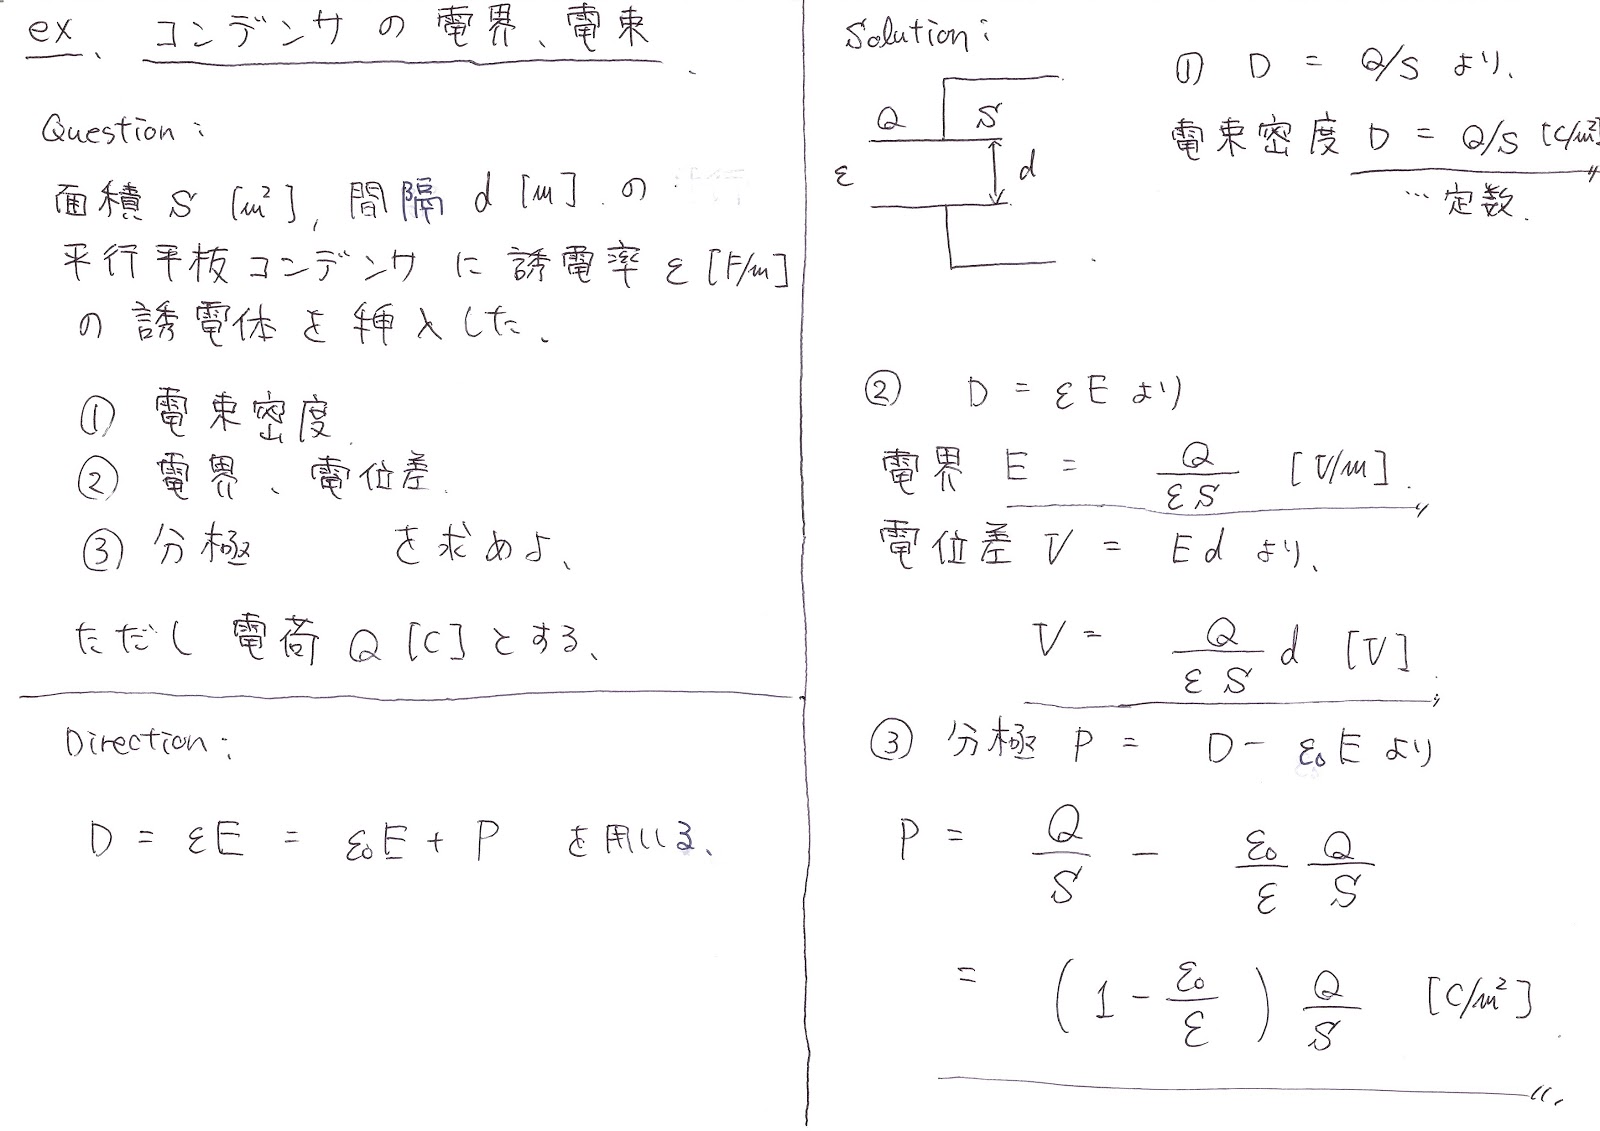 ex、コンデンサの電界、電束
Question:
面積 S [m²], 間隔 d [m] の
平行平板コンデンサに誘電率 ε [F/m]
の誘電体を挿入した、
① 電束密度
② 電界、電位差
③ 分極 を求めよ、
ただし電荷 Q [C] とする、
Direction:
D = εE = ε₀E + P を用いる、
Solution:
Q S
ε d
① D = Q/S より、
電束密度 D = Q/S [C/m²]
… 定数
② D = εE より
電界 E = Q/εS [V/m]
電位差 V = Ed より、
V = Q/εS d [V]
③ 分極 P = D - ε₀E より
P = Q/S - ε₀/ε Q/S
= (1 - ε₀/ε) Q/S [C/m²]